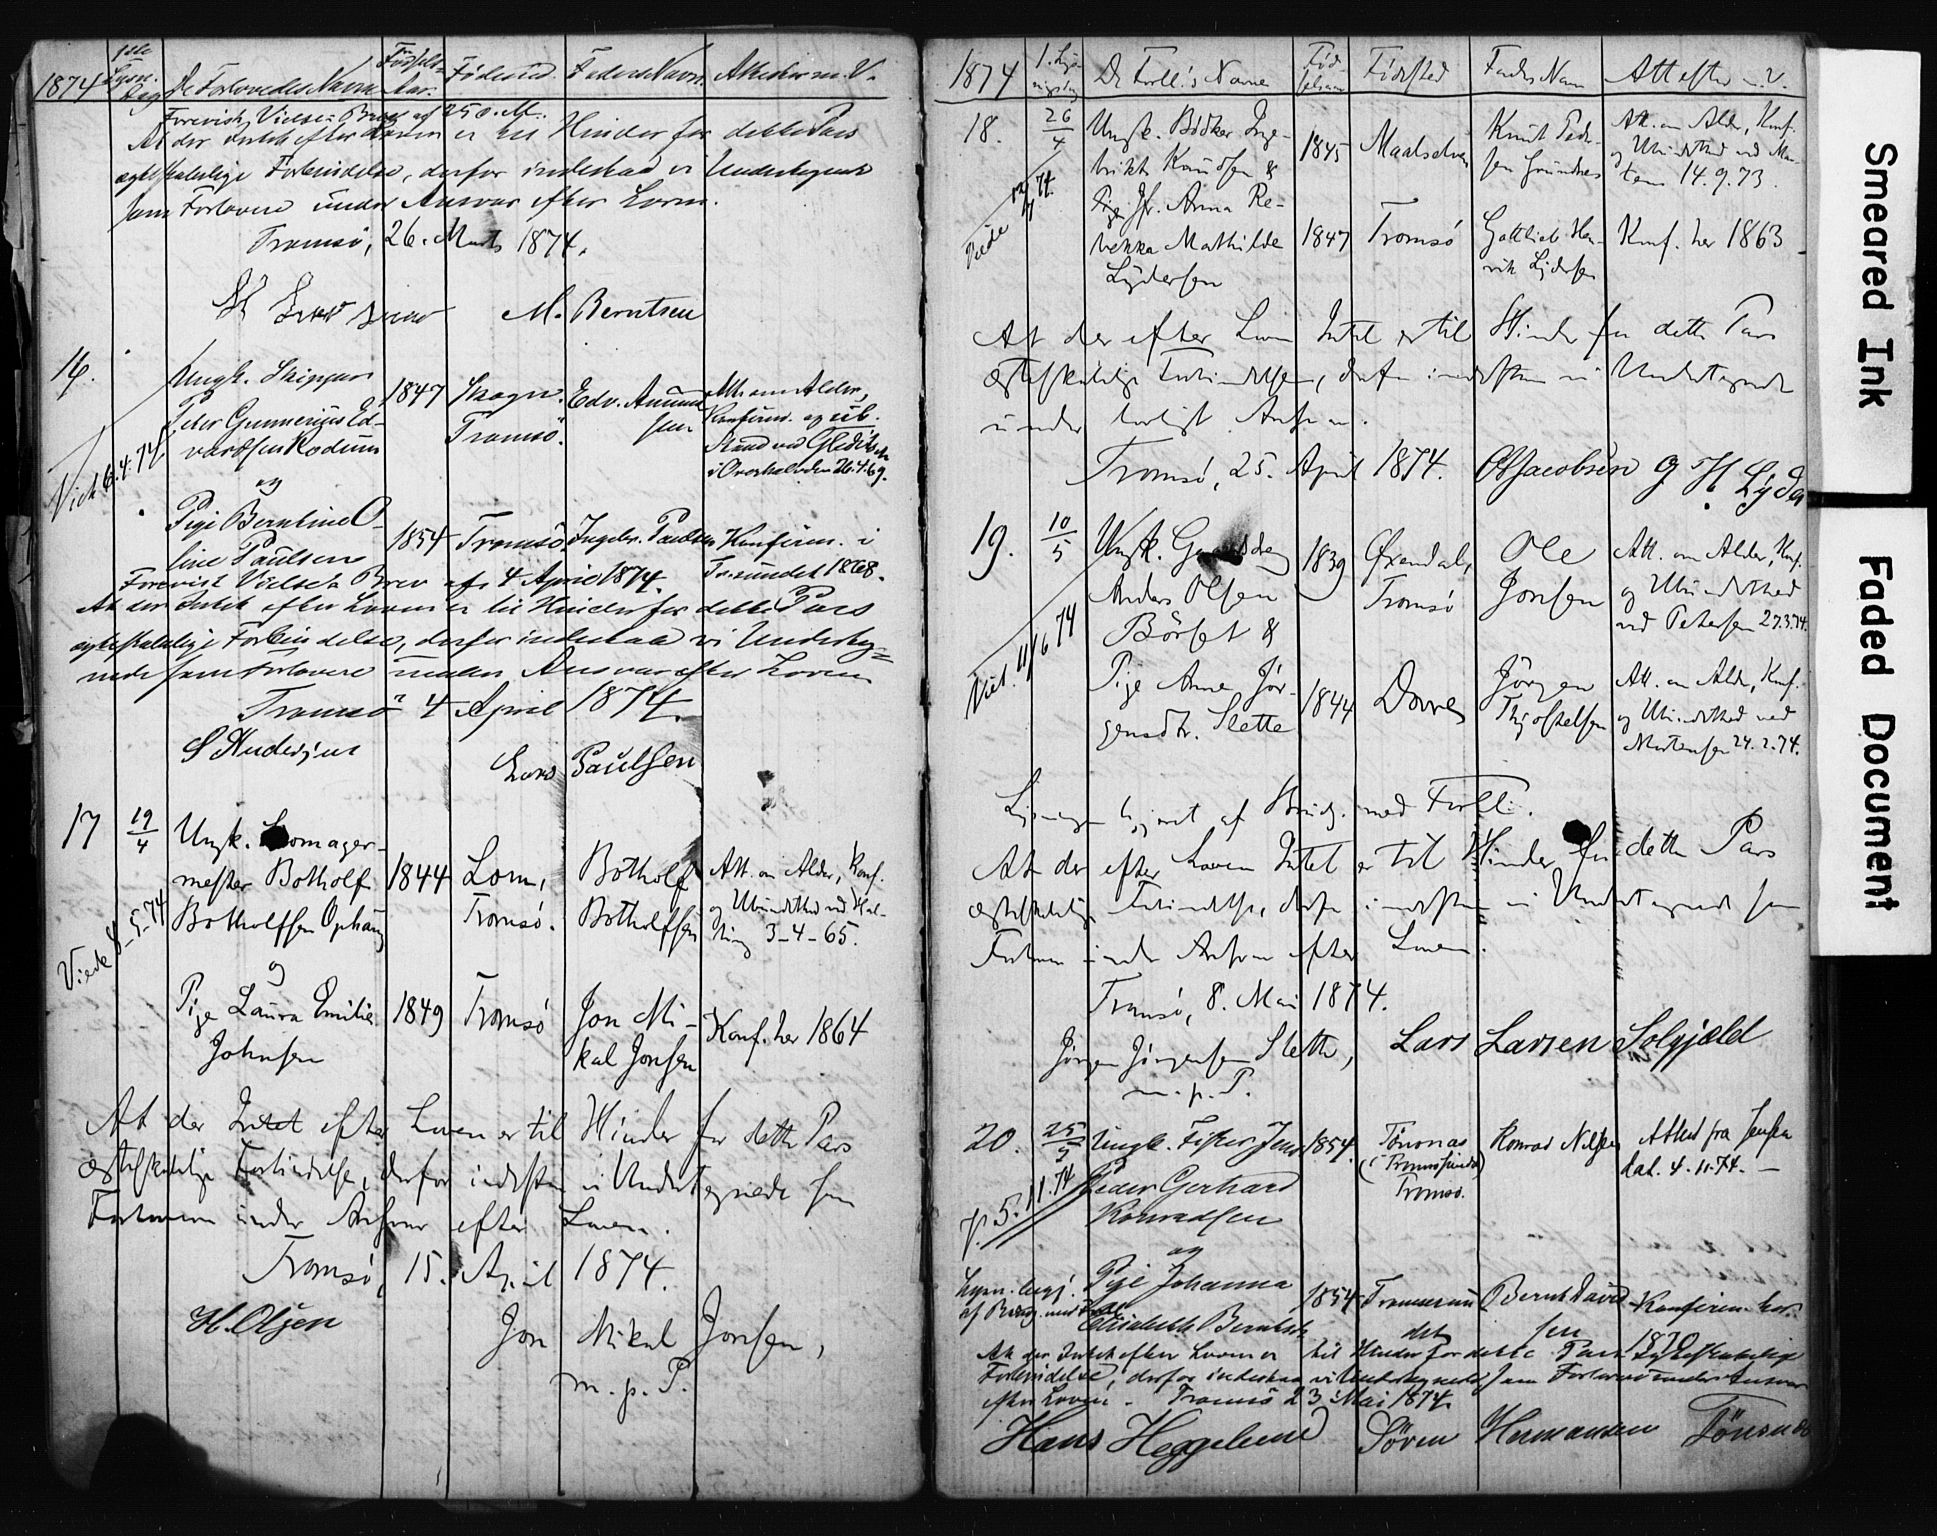 1874
1ste Lysn. Dag
De Forlovedes Navne
Fødsels-Aar.
Fødested.
Faders Navn.
Attester m. V.
Forevist Vielse-Brev af 25 M.
At der Intet efter Loven er til Hinder for dette Pars
ægteskabelige Forbindelse, derfor indestaa vi Undertegnede
som Forlovere under Ansvar efter Loven.
Tromsø, 26. Marts 1874.
M. Berntsen
16.
Ungk. Skipper
Peder Gunnerius Ed-
vardsen Rodum
1847
Skogn.
Tromsø.
Edv. Amund
sen
Att. om Alder,
Konfirm. og ub.
Stand ved Gleditsch
i Overhalvden 26.4.69.
Viet 6.4.74.
og
Pige Berntine O-
line Paulsen
1854
Tromsø.
Ingebr. Paulsen
Konfirm. i
Tr.sundet 1868.
Forevist Vielses Brev af 4 April 1874.
At der Intet efter Loven er til Hinder for dette Pars
ægteskabelige Forbindelse, derfor indestaa vi Underteg=
nede som Forlovere under Ansvar efter Loven
Tromsø 4 April 1874.
S Andersen
Lars Paulsen
17
19/4
Ungk. Komager-
mester Botholf
Botholfsen Ophaug
1844
Lom,
Tromsø.
Botholf
Botholfsen
Att. om Alder, Konf.
og Ubundethed ved Hal-
ling 3-4-65.
Viede 8-5-74
og
Pige Laura Emilie
Johnsen
1849
Tromsø
Jon Mi-
kal Jonsen
Konf. her 1864
At der Intet efter Loven er til Hinder for dette Pars
ægteskabelige Forbindelse, derfor indestaa vi Undertegnede som
Forlovere under Ansvar efter Loven.
Tromsø, 15. April 1874.
H. Olsen
Jon Mikal Jonsen,
m. p. P.
1874
1. Lys-
ningsdag
De Forll.'s Navne
Fød-
selsaar
Fødested
Faders Navn
Att. efter m. V.
18.
26/4
Ungk. Bødker Inge-
brikt Knudsen &
1845
Maalselven
Knut Peder-
sen Grundnes
Att. om Alder, Konf.
og Ubundethed ved Mar-
tens 14.9.73.
Viede
Pige Jfr. Anna Re-
bekka Mathilde
Lydersen
1847
Tromsø
Gottlieb Hen-
rik Lydersen
Konf. her 1863
At der efter Loven Intet er til Hinder for dette Pars
ægteskabelige Forbindelse, derfor indestaa vi Undertegnede
under lovligt Ansvar.
Tromsø, 25. April 1874.
O Jacobsen
G H Lyder
19.
10/5
Ungk. Gaardbr
Anders Olsen
Börset &
1839
Ørendal,
Tromsø
Ole
Jonsen
Att. om Alder, Konf.
og Ubundethed
ved Petersen 27.3.74.
Viet. 11/6 74
Pige Anne Jør-
gensdtr. Slette
1844
Dovre
Jørgen
Thjostelsen
Att. om Alder, Konf.
og Ubundethed ved
Mortensen 24.2.74.
Lysningen begjæret af Brudg. med Forll.
At der efter Loven Intet er til Hinder for dette Pars
ægteskabelige Forbindelse, derfor indestaa vi Undertegnede som
Forlovere under Ansvar efter Loven.
Tromsø, 8. Mai 1874.
Jørgen Jørgensen Slette,
m. p. P.
Lars Larsen Solgjæld
20.
25/5
Ungk. Fisker Jens
Peder Gerhard
Konradsen
1854.
Tønsnæs
(i Tromsøsundet)
Tromsø.
Konrad Nilsen
Attest fra Jensen
dat. 4.11.74. —
V. 5.11.74
og
Pige Johanna
Elisabeth Berntsdt
1854
Tromsøsun
det
Bernt David-
sen
Konfirm. her
1870
Lysn. begj.
af Brudg. med Forll.
At der Intet efter Loven er til Hinder for dette Pars Ægteskabelige
Forbindelse, derfor indestaa vi Undertegnede som Forlovere under Ansvar
efter Loven. Tromsø 23 Mai 1874.
Hans Heggelund
Søren Hermansen Tönsnes
Smeared Ink
Faded Document